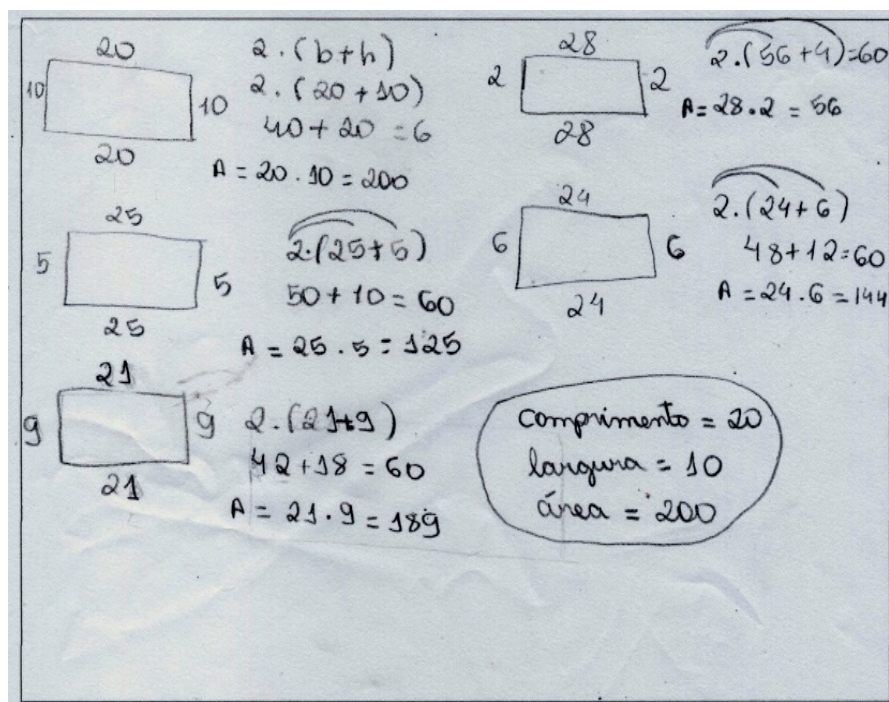 20
10
10
20
2 . (b+h)
2 . (20 + 10)
40 + 20 = 6
A = 20 . 10 = 200
28
2
2
28
2.(56 + 4)=60
A= 28.2 = 56
25
5
5
25
2.(25+5)
50 + 10 = 60
A = 25 . 5 = 125
24
6
6
24
2.(24+6)
48+12=60
A = 24.6 = 144
21
9
9
21
2.(21+9)
42 +18 = 60
A = 21.9 = 189
comprimento = 20
largura = 10
área = 200